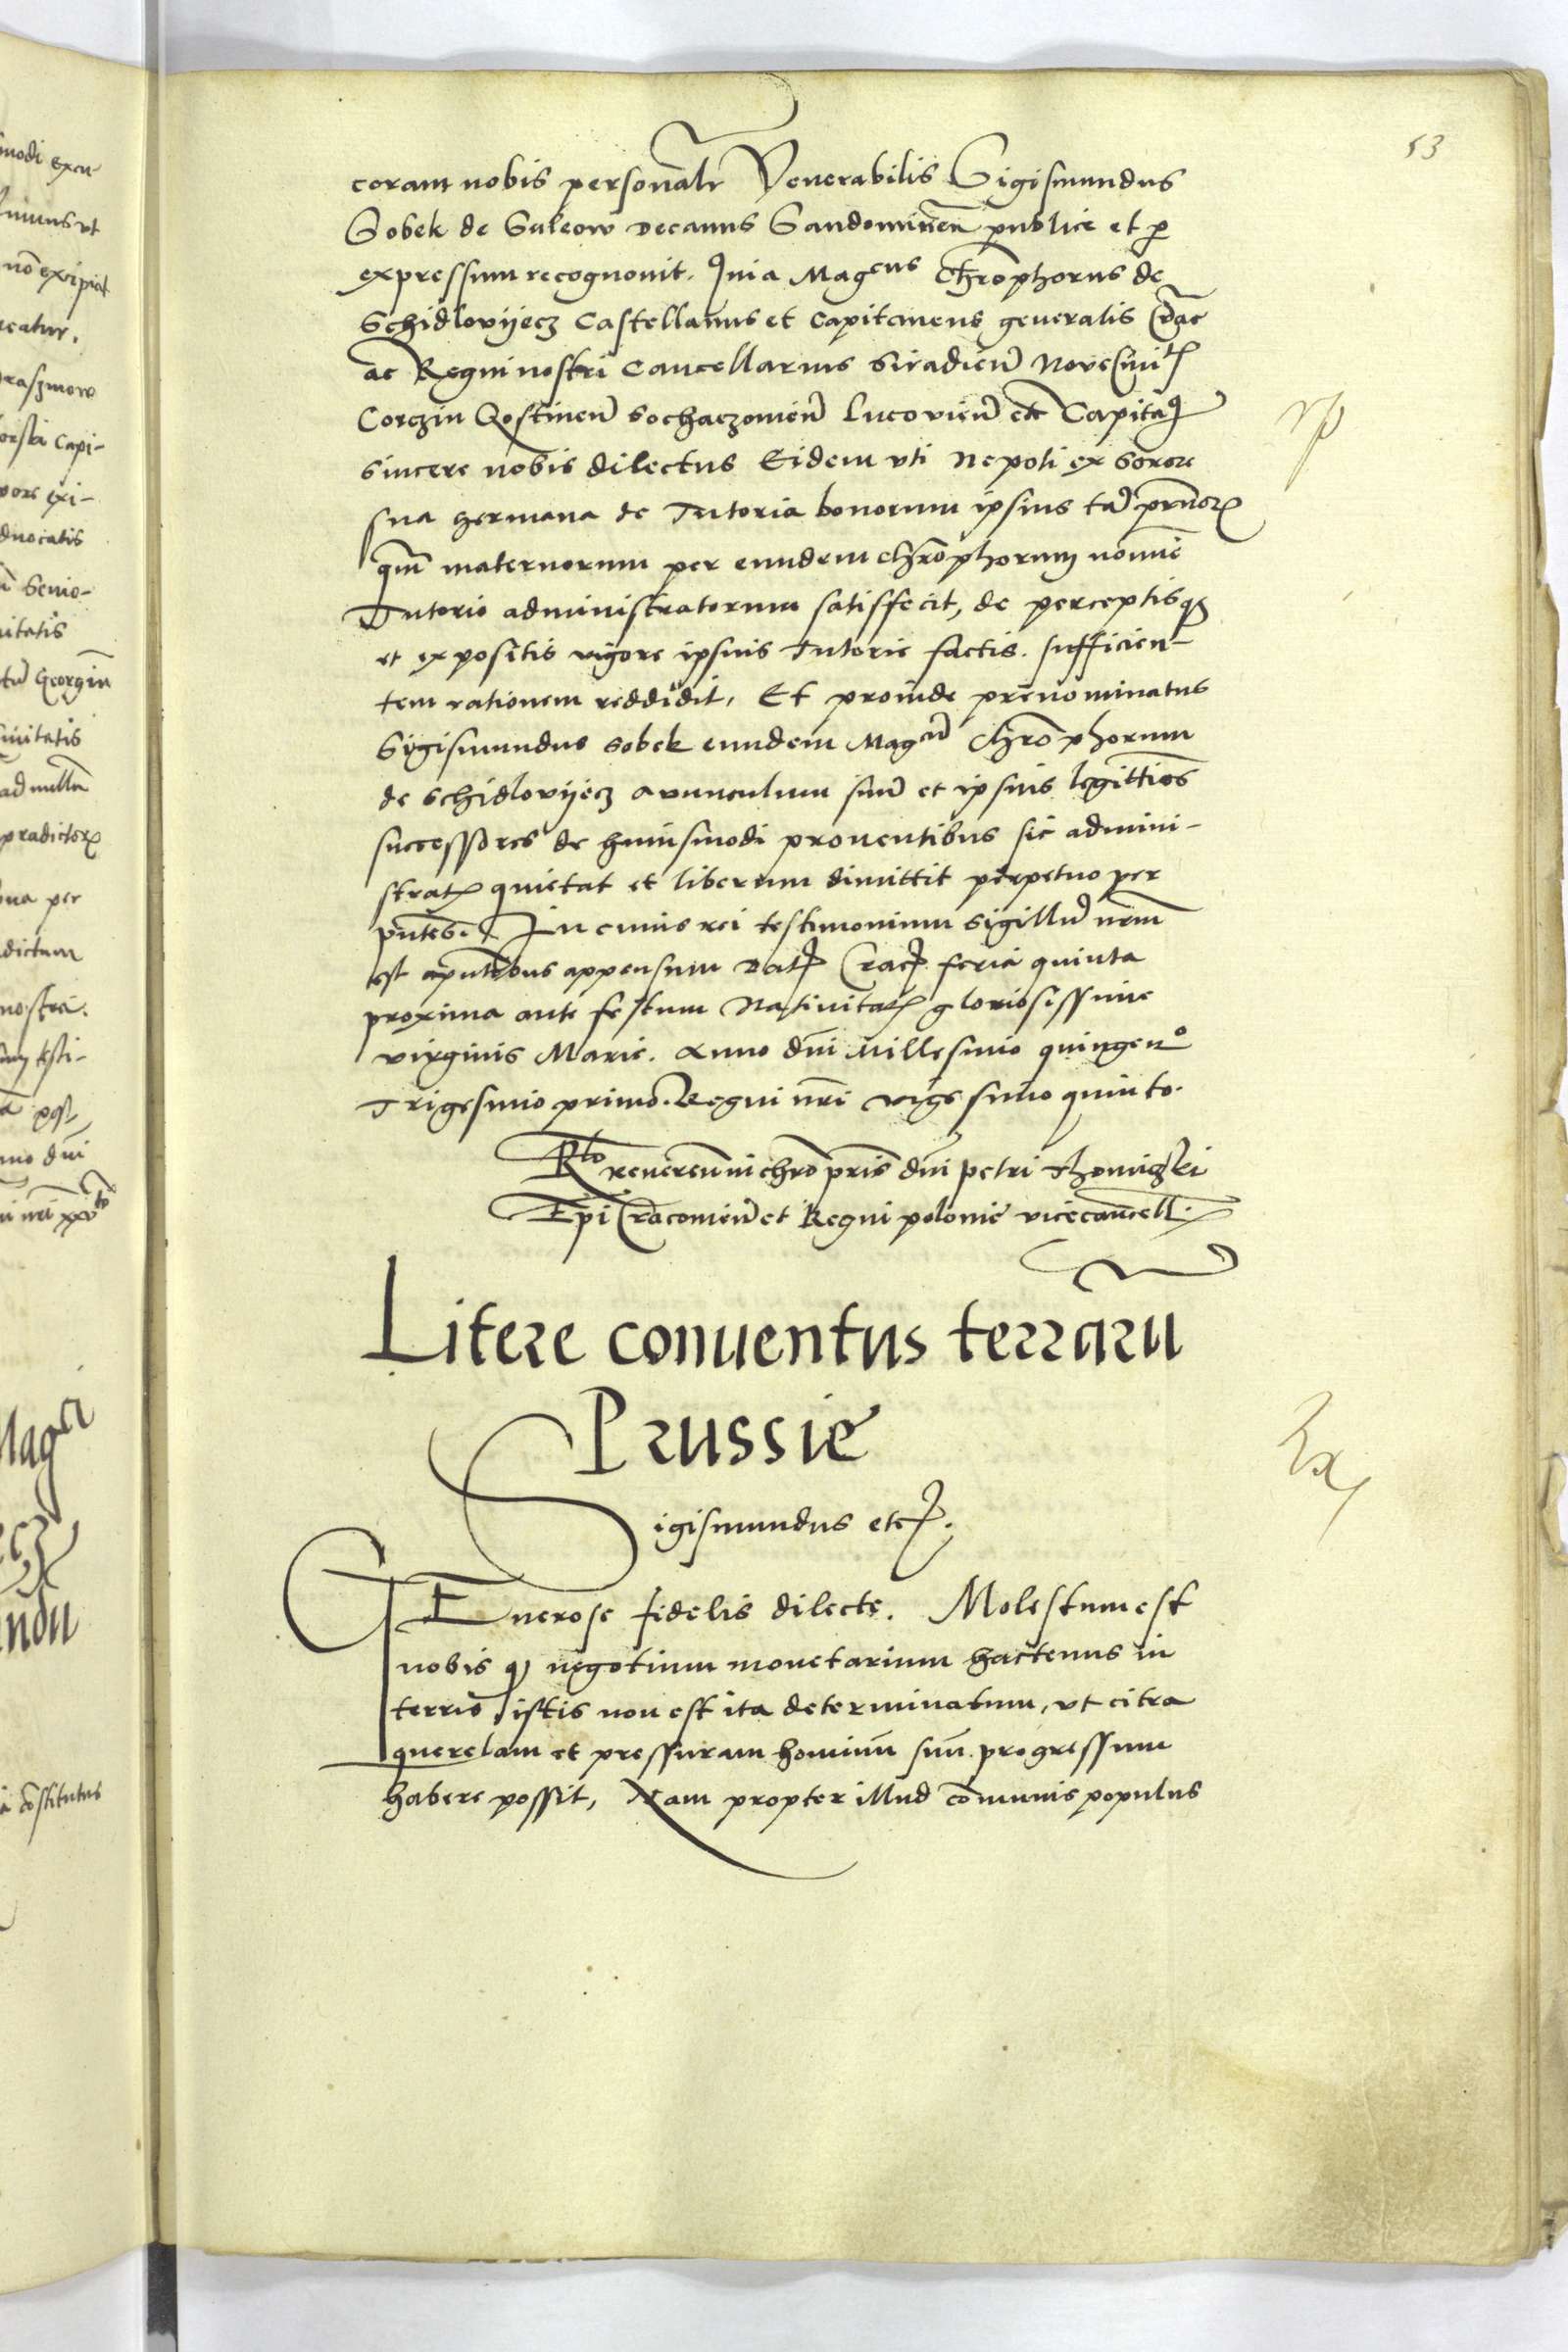 53
coram nobis personalr Venerabilis Sigismundus
Sobek de Suleow decanus Sandominen publice et p
expressum recognovit. Quia Magcus Chrophorus de
Schidlovyecz Castellanus et Capitaneus generalis Crac
ac Regni nostri Cancellarius Siradien Nove
Corczin Gostinen Sochaczovien Lucovien etc Capita
sincere nobis dilectus Eidem uti Nepoti ex Sorore
sua germana de Tutoria bonorum ipsius ta prnor
qum maternorum per eundem chrophorum nomie
Tutorio administratorum satisfecit, de perceptis q
et expositis vigore ipsius Tutorie factis. sufficien-
tem rationem reddidit, Et proinde prenominatus
Sigismundus Sobek eundem Magcu Chrophorum
de Schidlovyecz avunculum suu et ipsius legittios
successores de huiusmodi proventibus sic admini-
strat quietat et liberum dimittit perpetuo per
pntes. In cuius rei testimonium sigillu nrm
est apntibus appensum Dat Crac feria quinta
proxima ante festum Nativitat gloriosissime
virginis Marie. Anno dni Millesimo quingeno
Trigesimo primo. Regni nri vigesimo quinto.
Rlo reveren in chro pris dni petri Thomiczki
Epi Cracovien et Regni polonie vicecancell.
Litere conventus terraru
Prussie
Sigismundus etc.
GEnerose fidelis dilecte. Molestum est
nobis q negotium monetarium hactenus in
terris istis non est ita determinatum, ut citra
querelam et pressuram hominu suu progressum
habere possit, Nam propter illud comunis populus